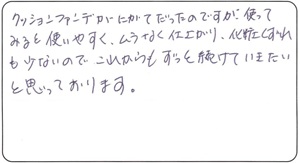 クッションファンデがにがてだったのですが使って
みると使いやすく、ムラなく仕上がり、化粧くずれ
も少ないのでこれからもずっと続けていきたい
と思っております。